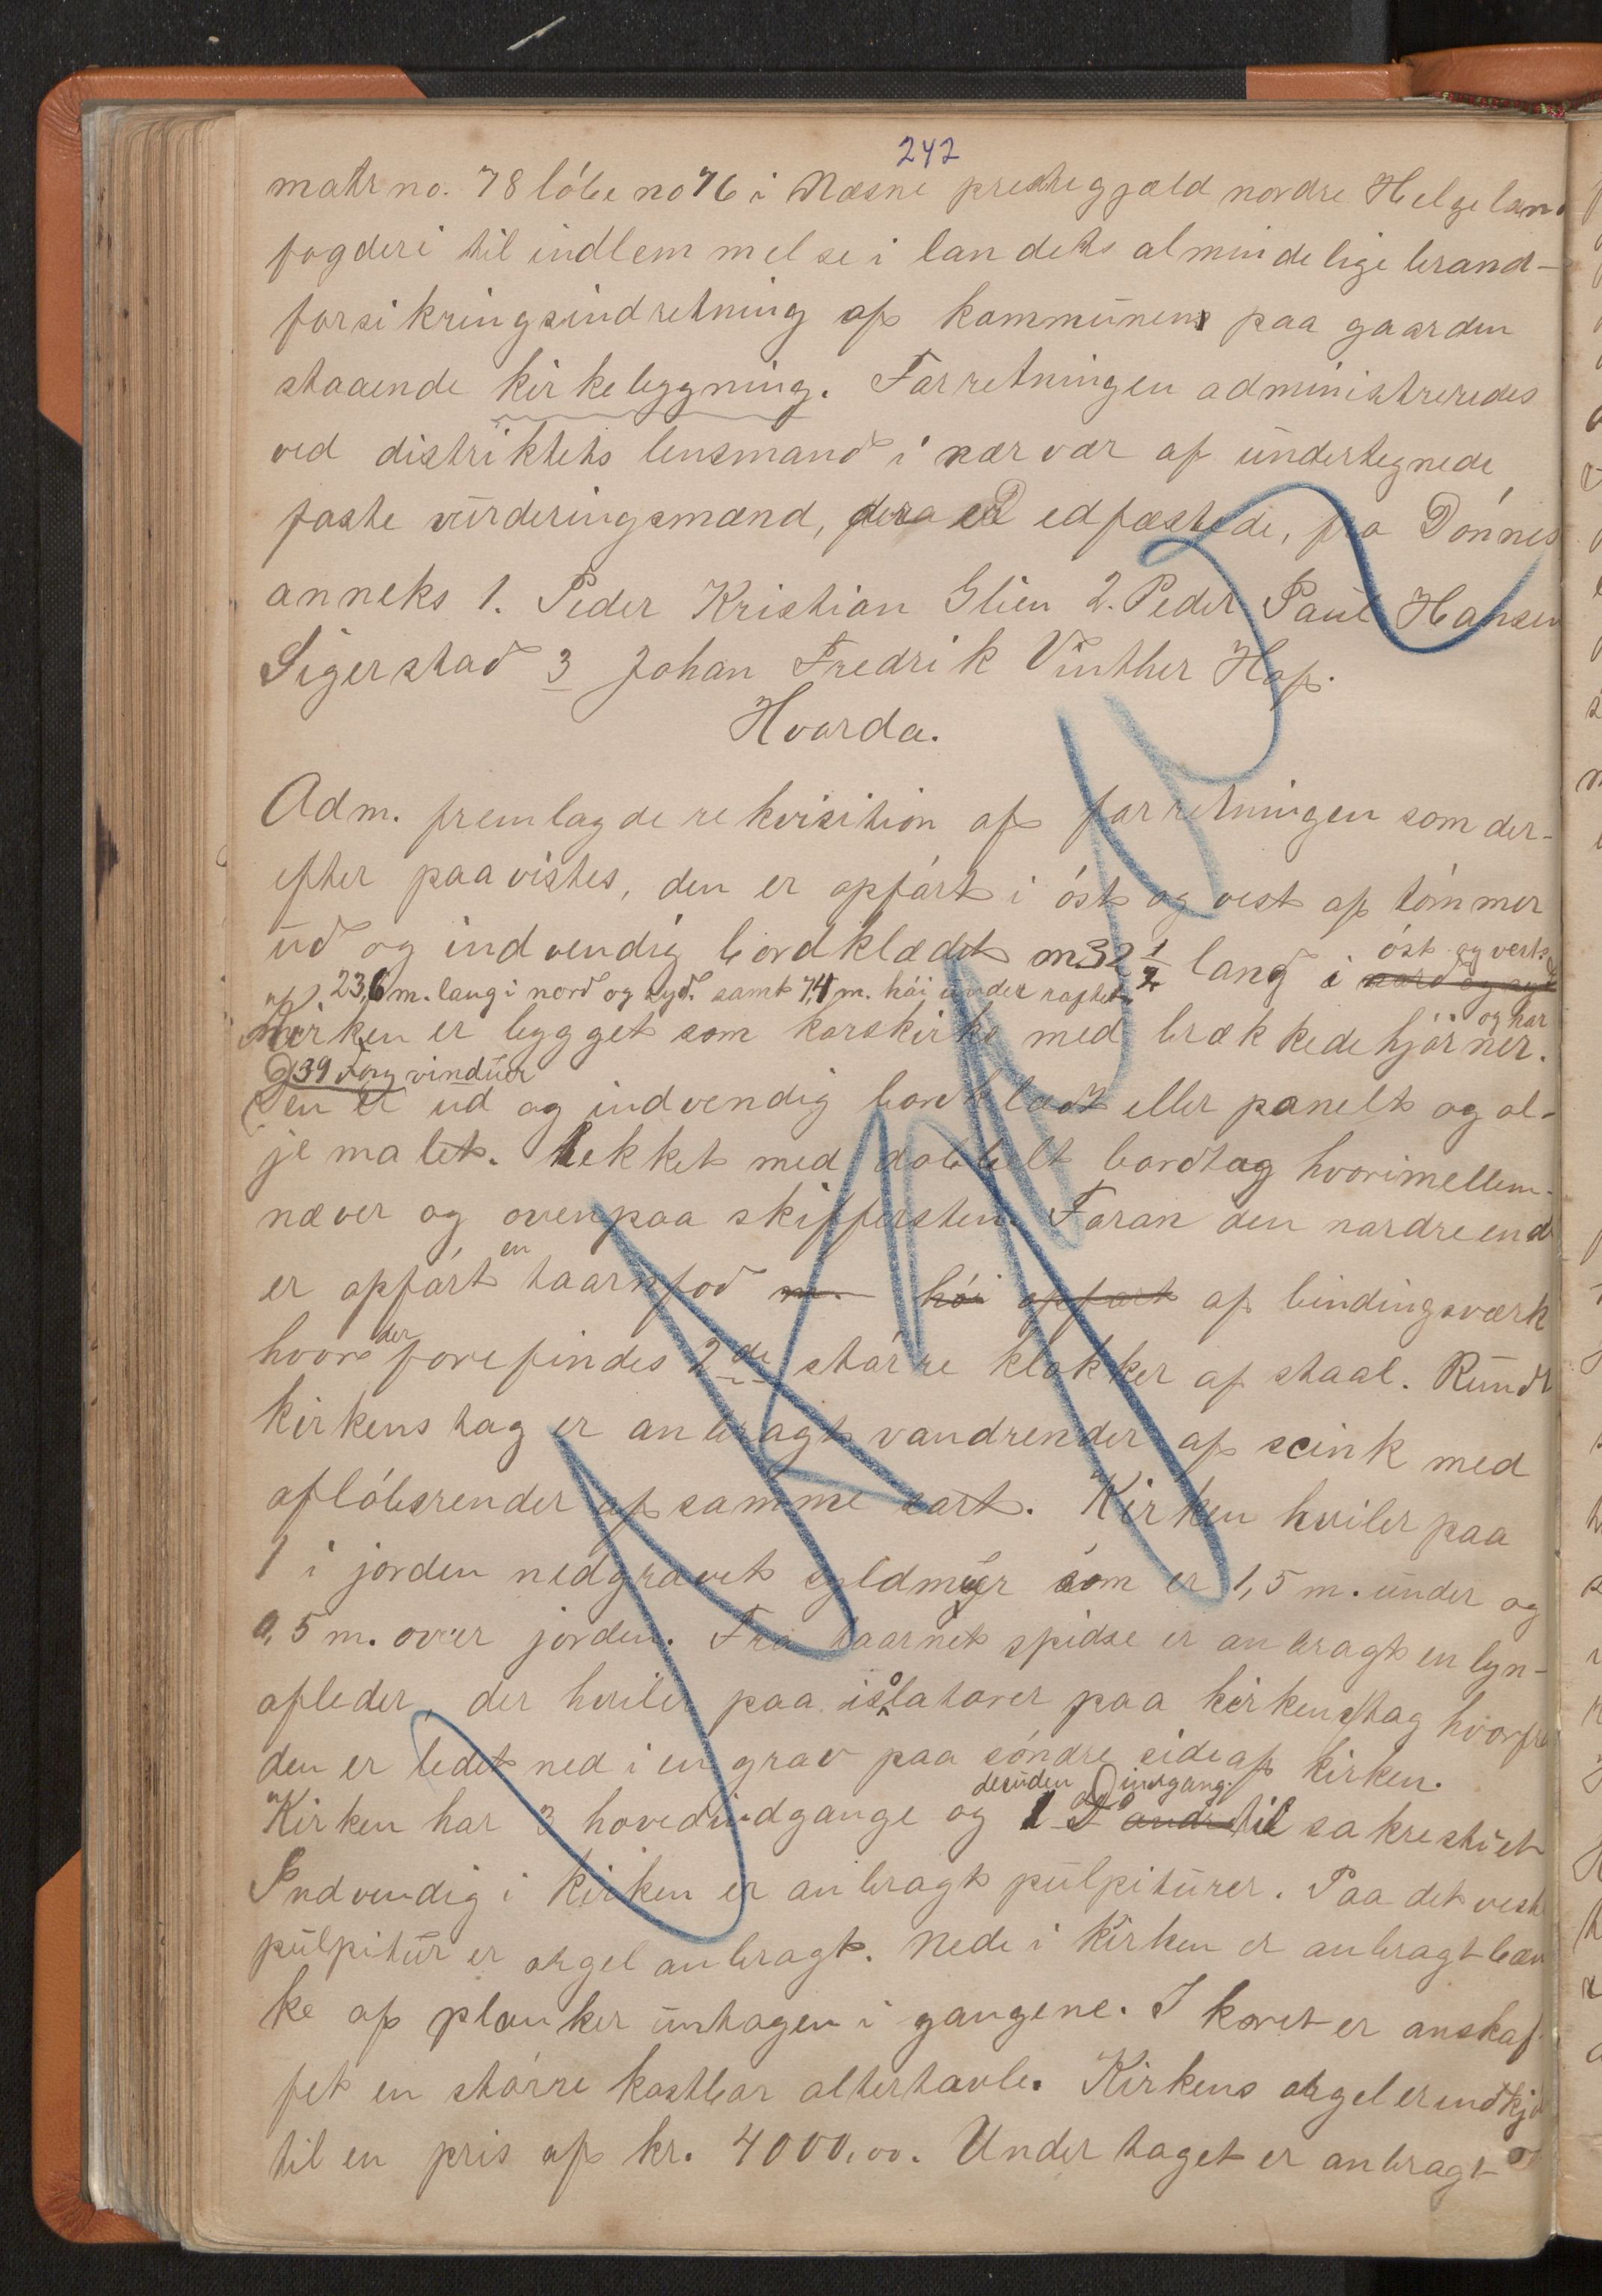 242
matr no. 78 löbe no 76 i Næsne prestegjæld nordre Helgeland
fogderi til indlemmelse i landets almindelige brand-
forsikringsindretning af kommunens paa gaarden
staaende kirkebygning. Forretningen administreredes
ved distriktets lensmand i nærvær af undertegnede
faste vurderingsmænd, edfæstede, fra Dönnes
anneks 1. Peder Kristian Glien 2. Peder Paul Hansen
Sigerstad 3 Johan Fredrik Vinther Hof.
Hvorda.
Adm. fremlagde rekvisition af forretningen som der-
efter paavistes, den er opført i öst og vest af tömmer
ud og indvendig bordklædet m 32 1/2 lang i nord og syd öst og vest
af. 23,6 m. lang i nord og syd. samt 7,4 m. höi under raftet
Kirken er bygget som korskirke med brækkede hjörner. og har
39 Fag vinduer
Den er ud og indvendig bordklædt eller panelt og ol-
jemalet. Tekket med dobbelt bordtag hvorimellem
næver og ovenpaa skiffersten. Foran den nordre end
er opfört en taarnfod m. höi opfört af bindingsværk
hvor der forefindes 2de större klokker af staal. Rundt
kirkens tag er anbragt vandrender af scink med
aflöbsrender af samme sort. Kirken hviler paa
1 i jorden nedgravet syldmyr som er 1,5 m. under og
0,5 m. over jorden. Fra taarnets spidse er anbragt en lyn-
afleder, der hviler paa isolatorer paa kirkens tag hvorfra
den er ledet ned i en grav paa söndre side af kirken.
Kirken har 3 hovedindgange og desuden 1 indgang til sakrestiet
Indvendig i kirken er anbragt pulpiturer. Paa det vest
pulpitur er orgel anbragt. Nede i kirken er anbragt bæn
ke af planker untagen i gangene. I koret er anskaf-
fet en större kostbar altertavle. Kirkens orgel er indkjö
til en pris af kr. 4000,00. Under taget er anbragt